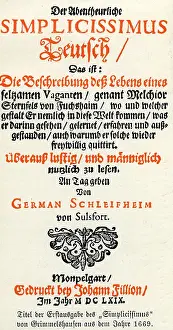 Der Abentheurliche
SIMPLICISSIMUS
Teutsch/
Das ist:
Die Beschreibung deß Lebens eines
seltzamen Vaganten/ genant Melchior
Sternfels von Fuchshaim/ wo und welcher
gestalt Er nemlich in diese Welt kommen/ was
er darinn gesehen/ gelernet/ erfahren und auß-
gestanden/ auch warumb er solche wieder
freywillig quittirt.
Überauß lustig/ und männiglich
nutzlich zu lesen.
An Tag geben
Von
GERMAN SCHLEIFHEIM
von Sulsfort.
Monpelgart/
Gedruckt bey Johann Fillion/
Im Jahr M DC LXIX.
Titel der Erstausgabe des „Simplicissimus"
von Grimmelshausen aus dem Jahre 1669.